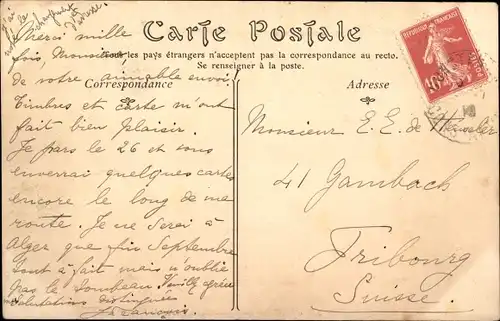 j'ai
le
changement
d'adresse.
Carte Postale
Tous les pays étrangers n'acceptent pas la correspondance au recto.
Se renseigner à la poste.
Correspondance
Adresse
RÉPUBLIQUE FRANÇAISE
10
Merci mille
fois, Monsieur,
de votre aimable envoi.
Timbres et carte m'ont
fait bien plaisir.
Je pars le 26 et vous
enverrai quelques cartes
encore le long de me
route. Je ne serai à
Alger que fin Septembre
tout à fait mais n'oublie
pas le tombeau. Veuillez agréer
salutations distinguées
Monsieur E. E. de
41 Gambach
Fribourg
Suisse.